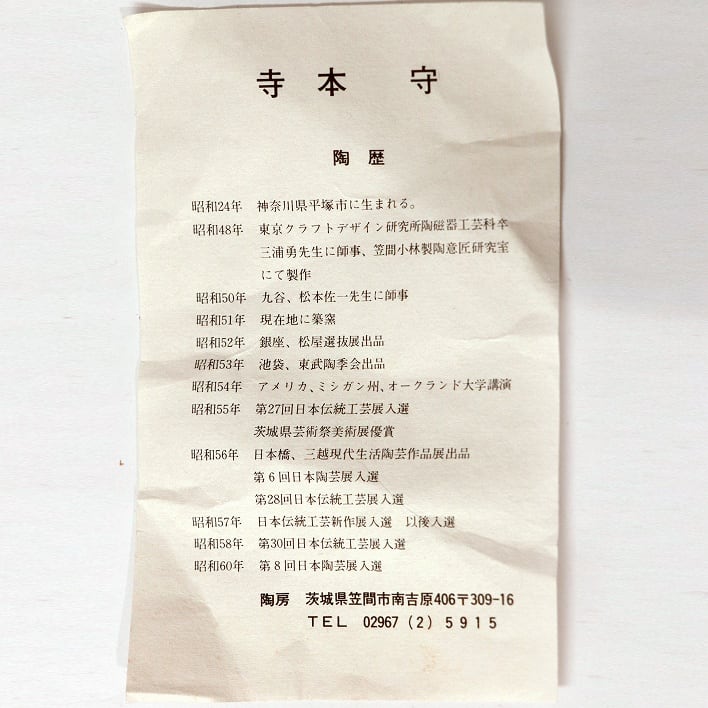 寺本 守
陶歴
昭和24年 神奈川県平塚市に生まれる。
昭和48年 東京クラフトデザイン研究所陶磁器工芸科卒
三浦勇先生に師事、笠間小林製陶意匠研究室
にて製作
昭和50年 九谷、松本佐一先生に師事
昭和51年 現在地に築窯
昭和52年 銀座、松屋選抜展出品
昭和53年 池袋、東武陶季会出品
昭和54年 アメリカ、ミシガン州、オークランド大学講演
昭和55年 第27回日本伝統工芸展入選
茨城県芸術祭美術展優賞
昭和56年 日本橋、三越現代生活陶芸作品展出品
第6回日本陶芸展入選
第28回日本伝統工芸展入選
昭和57年 日本伝統工芸新作展入選 以後入選
昭和58年 第30回日本伝統工芸展入選
昭和60年 第8回日本陶芸展入選
陶房 茨城県笠間市南吉原406〒309-16
TEL 02967(2)5915